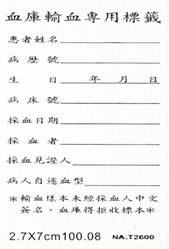 血庫輸血專用標籤
患者姓名
病歷號
生日 年 月 日
病床號
採血日期
採血者
採血見證人
病人自述血型
※輸血樣本未經採血人中文
簽名，血庫得拒收標本※
2.7X7cm100.08 NA.T2600